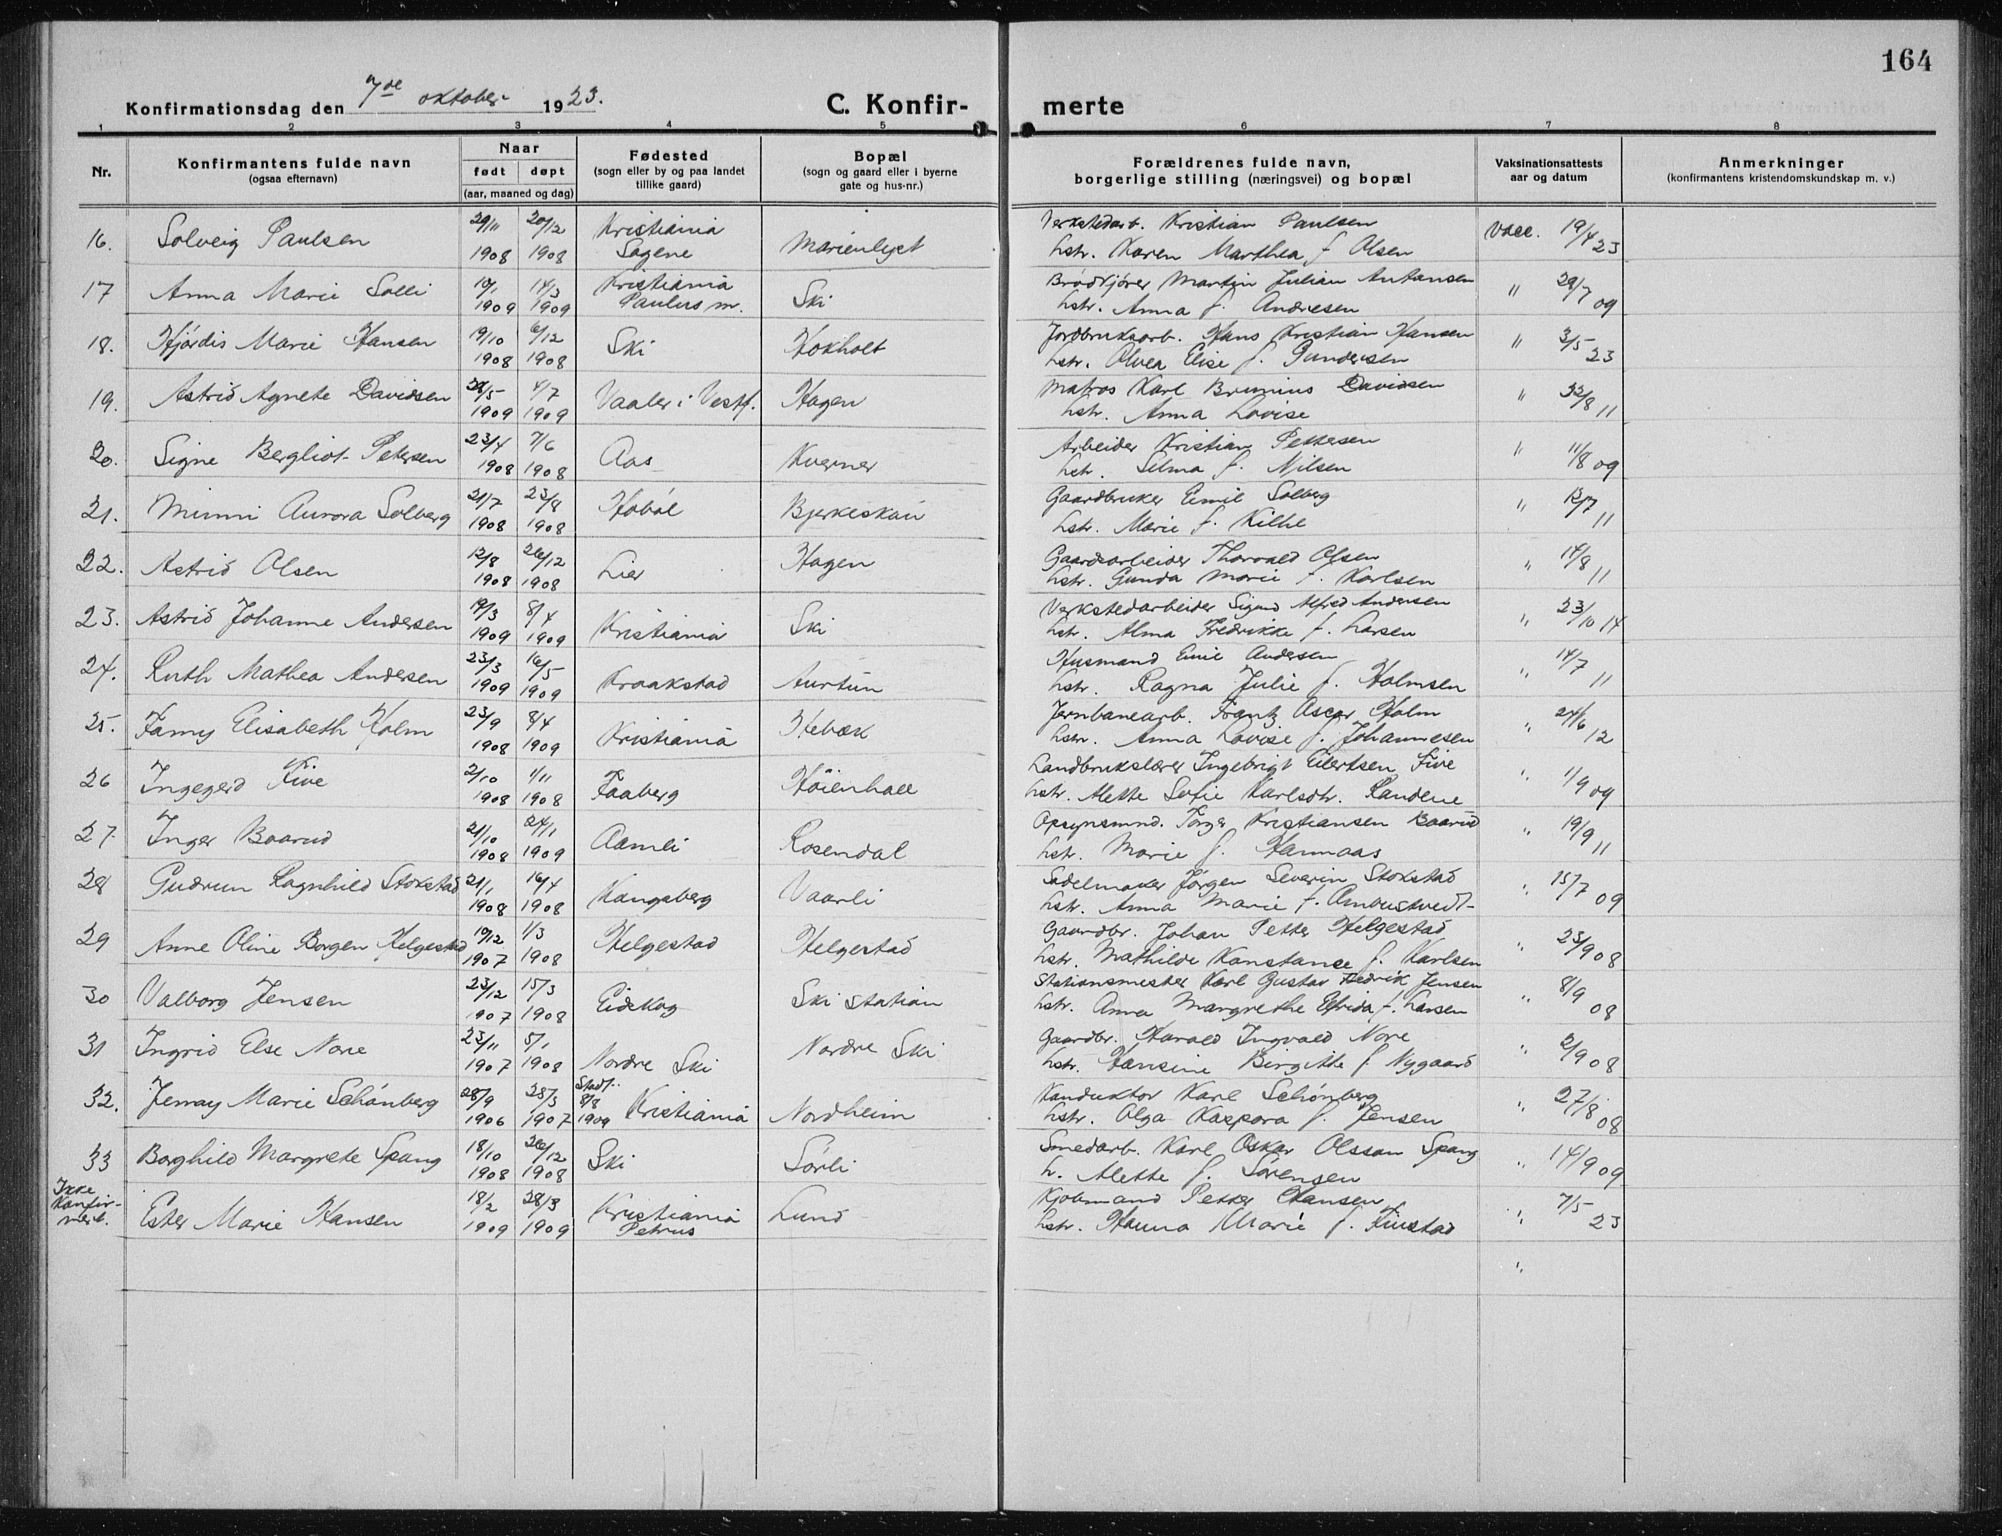 164
Konfirmationsdag den 7de oktober 1923.
C. Konfir-
merte
1 2 3 4 5 6 7 8
Nr.
Konfirmantens fulde navn
(ogsaa efternavn)
Naar
født døpt
(aar, maaned og dag)
Fødested
(sogn eller by og paa landet
tillike gaard)
Bopæl
(sogn og gaard eller i byerne
gate og hus-nr.)
Forældrenes fulde navn,
borgerlige stilling (næringsvei) og bopæl
Vaksinationsattests
aar og datum
Anmerkninger
(konfirmantens kristendomskundskap m. v.)
16. Solveig Paulsen 29/11 1908 20/12 1908 Kristiania Sagene Marienlyst
Verkstedarb. Kristian Paulsen
Hstr. Karen Marthea f. Olsen
Vacc. 19/4 23
17 Anna Marie Solli 1909 14/3 1909 Kristiania Paulus m. Ski
Brødkjører Martin Julian Antonsen
Hstr. Anna f. Andresen
" 29/7 09
18. Hjördis Marie Hansen 19/10 1908 6/12 1908 Ski Hokholt
Jordbruksarb. Hans Kristian Hansen
Hstr. Olvea Elise f. Gundersen
" 3/5 23
19. Astrid Agnete Davidsen 1909 4/7 1909 Vaaler i Vestf. Hagen
Matros Karl Brunius Davidsen
Hstr. Anna Lovise
" 11
20. Signe Bergliot Petersen 23/4 1908 7/6 1908 Aas Kverner
Arbeider Kristian Pettersen
Hstr. Selma f. Nilsen
" 11/8 09
21. Minni Aurora Solberg 21/7 1908 23/8 1908 Hobøl Bjerkeskau
Gaardbruker Emil Solberg
Hstr. Marie f. Kilhe
" 11
22. Astrid Olsen 12/8 1908 26/12 1908 Lier Hagen
Gaardsarbeider Thorvald Olsen
Hstr. Gunda Marie f. Karlsen
" 14/8 11
23. Astrid Johanne Andersen 1909 8/4 1909 Kristiania Ski
Verkstedarbeider Sigurd Alfred Andersen
Hstr. Alma Fredrikke f. Larsen
" 23/10 14
24. Ruth Mathea Andersen 23/3 1909 16/5 1909 Kraakstad Aurtun
Husmand Emil Andersen
Hstr. Ragna Julie f. Holmsen
" 14/7 11
25. Fanny Elisabeth Holm 23/9 1908 8/4 1909 Kristiania Hebæk
Jernbanearb. Frantz Oscar Holm
Hstr. Anna Lovise f. Johannesen
" 24/6 12
26 Ingegerd Five 2/10 1908 1/11 1908 Faaberg Höienhall
Landbrukslærer Ingebrigt Eilertsen Five
Hstr. Alette Sofie Karlsdtr. Randene
" 1/9 09
27. Inger Baarud 21/10 1908 24/1 1909 Aamli Rosendal
Opsynsmnd. Torger Kristiansen Baarud
Hstr. Marie f. Hannaas
" 19/9 11
28 Gudrun Ragnhild Stokstad 21/1 1908 16/4 1908 Kongsberg Vaarli
Sadelmaker Jørgen Severin Stokstad
Hstr. Anna Marie f. Ombustvedt
" 15/7 09
29 Anne Oline Borgen Helgestad 19/12 1907 1/3 1908 Helgestad Helgestad
Gaardbr. Johan Petter Helgestad
Hstr. Mathilde Konstanse f. Karlsen
" 23/9 08
30 Valborg Jensen 23/12 1907 15/3 1908 Eidskog Ski Station
Stationsmester Karl Gustav Fredrik Jensen
Hstr. Anna Margrethe Elfrida f. Larsen
" 8/9 08
31 Ingrid Else Nore 23/11 1907 5/1 1908 Nordre Ski Nordre Ski
Gaardbr. Harald Ingvald Nore
Hstr. Hansine Birgitte f. Nygaard
" 2/9 08
32. Jenny Marie Schönberg 28/9 1906 28/3 1907 Stadf. 8/8 1909 Kristiania Nordheim
Konduktor Karl Schönberg
Hstr. Olga Kaspara f. Jensen
" 27/8 08
33 Borghild Margrete Spang 18/10 1908 26/12 1908 Ski Sörli
Smedarb. Karl Oskar Olsson Spang
H. Alette f. Sörensen
" 14/9 09
Ikke Konfir-mert. Ester Marie Hansen 18/2 1909 28/3 1909 Kristiania Petrus Lund
Kjøbmand Petter Hansen
Hstr. Hanna Marie f. Finstad
" 7/5 23
"